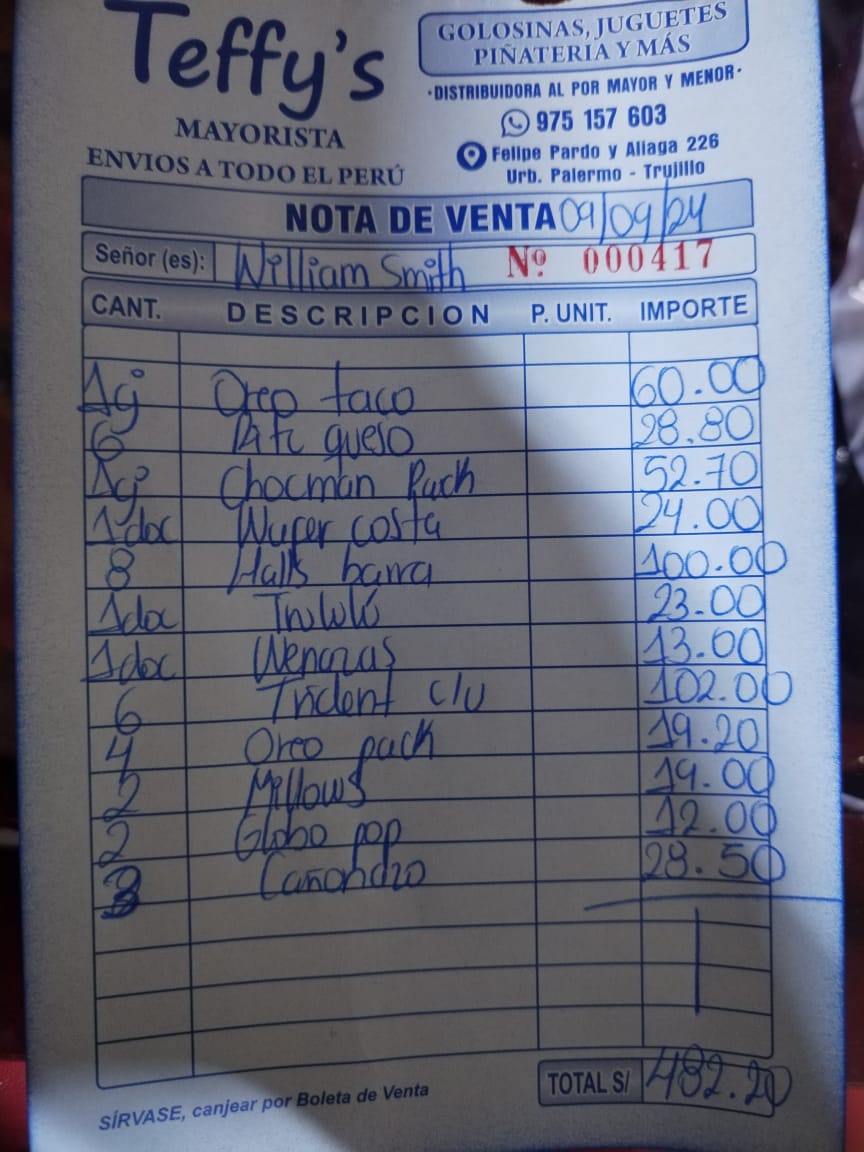 Teffy's
GOLOSINAS, JUGUETES
PIÑATERIA Y MÁS
·DISTRIBUIDORA AL POR MAYOR Y MENOR·
MAYORISTA
975 157 603
ENVIOS A TODO EL PERÚ
Felipe Pardo y Aliaga 226
Urb. Palermo - Trujillo
NOTA DE VENTA 09/09/24
Señor (es): William Smith Nº 000417
CANT. DESCRIPCION P. UNIT. IMPORTE
1cj Oreo taco 60.00
6 queso 28.80
1cj Chocman Pack 52.70
1doc Wafer costa 24.00
8 Halls barra 100.00
1doc Trululú 23.00
1doc 13.00
6 Trident c/u 102.00
4 Oreo pack 19.20
2 Millows 19.00
2 Globo pop 12.00
3 Cañonazo 28.50
TOTAL S/ 482.20
SÍRVASE, canjear por Boleta de Venta